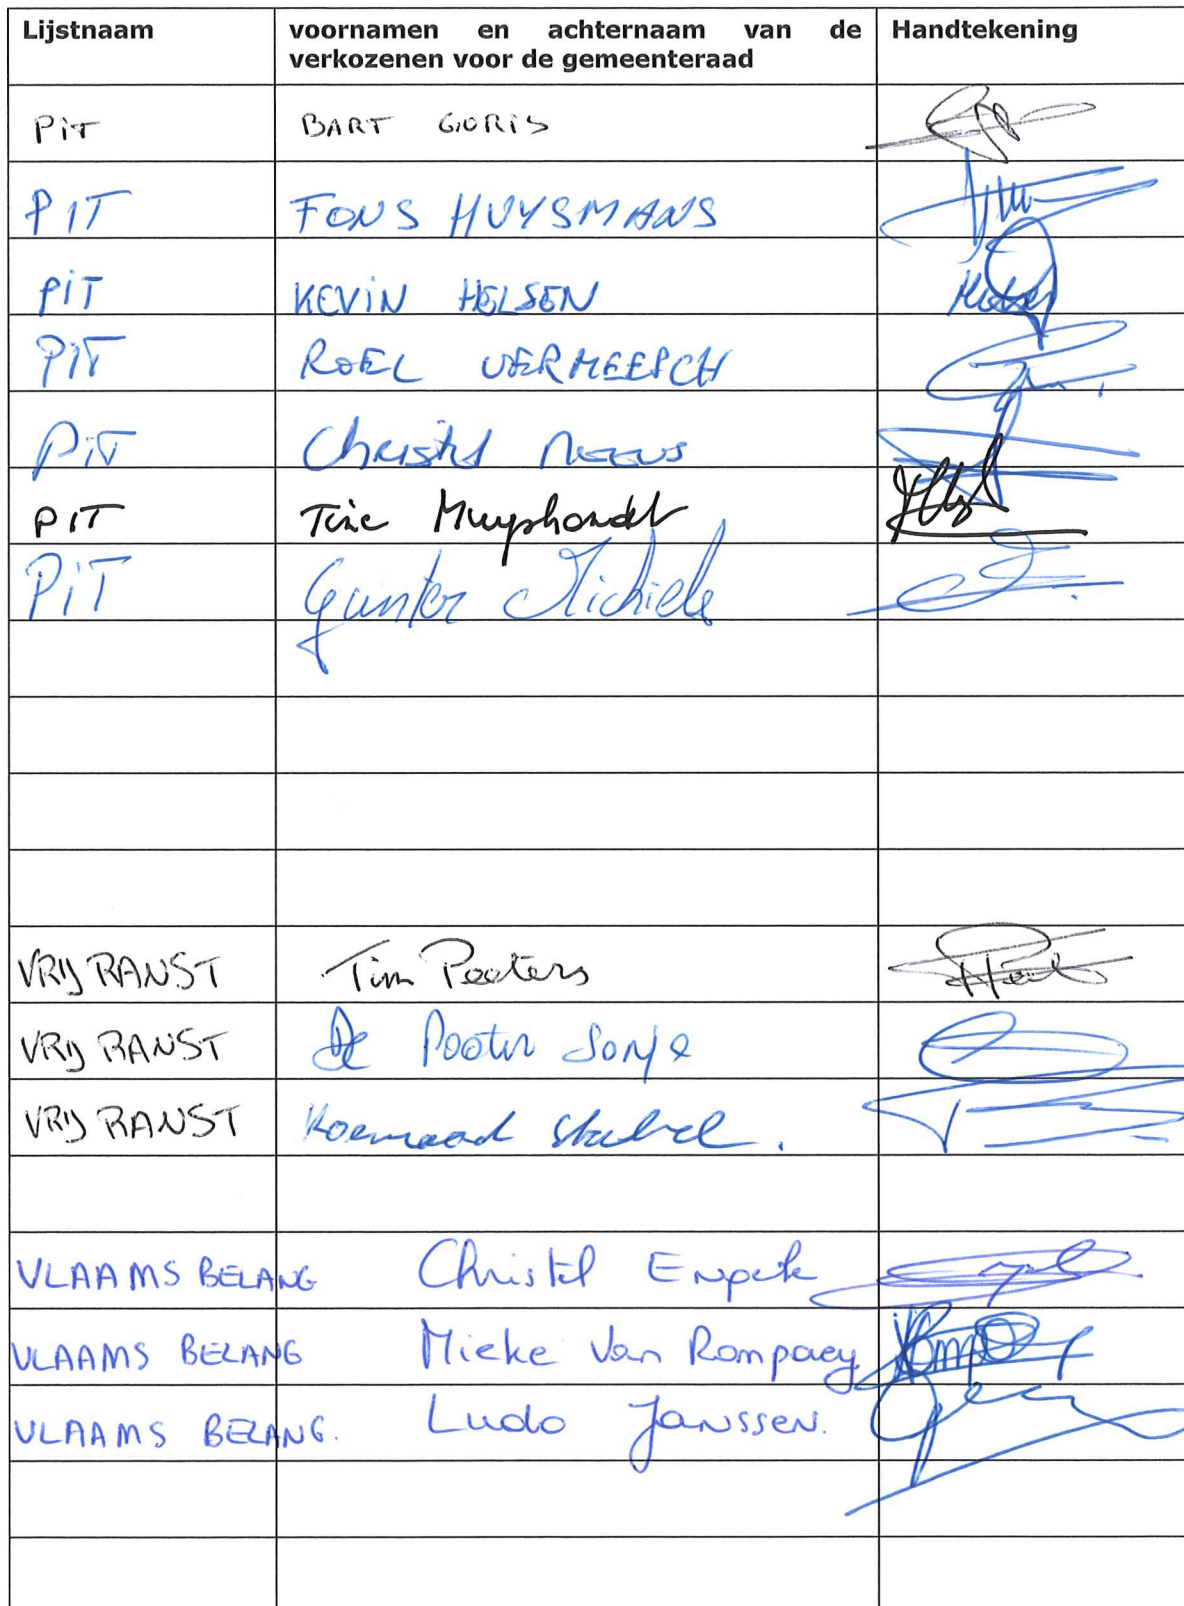 Lijstnaam voornamen en achternaam van de verkozenen voor de gemeenteraad Handtekening
PIT BART GORIS
PIT FONS HUYSMANS
PIT KEVIN HELSEN
PIT ROEL VERMEESCH
PIT Christel Neeus
PIT Tine Muyshondt
PIT Gunter Michiels
VRIJ RANST Tim Peeters
VRIJ RANST De Pooter Sonja
VRIJ RANST Koenraad
VLAAMS BELANG Christel Engels
VLAAMS BELANG Mieke Van Rompaey
VLAAMS BELANG. Ludo Janssen.